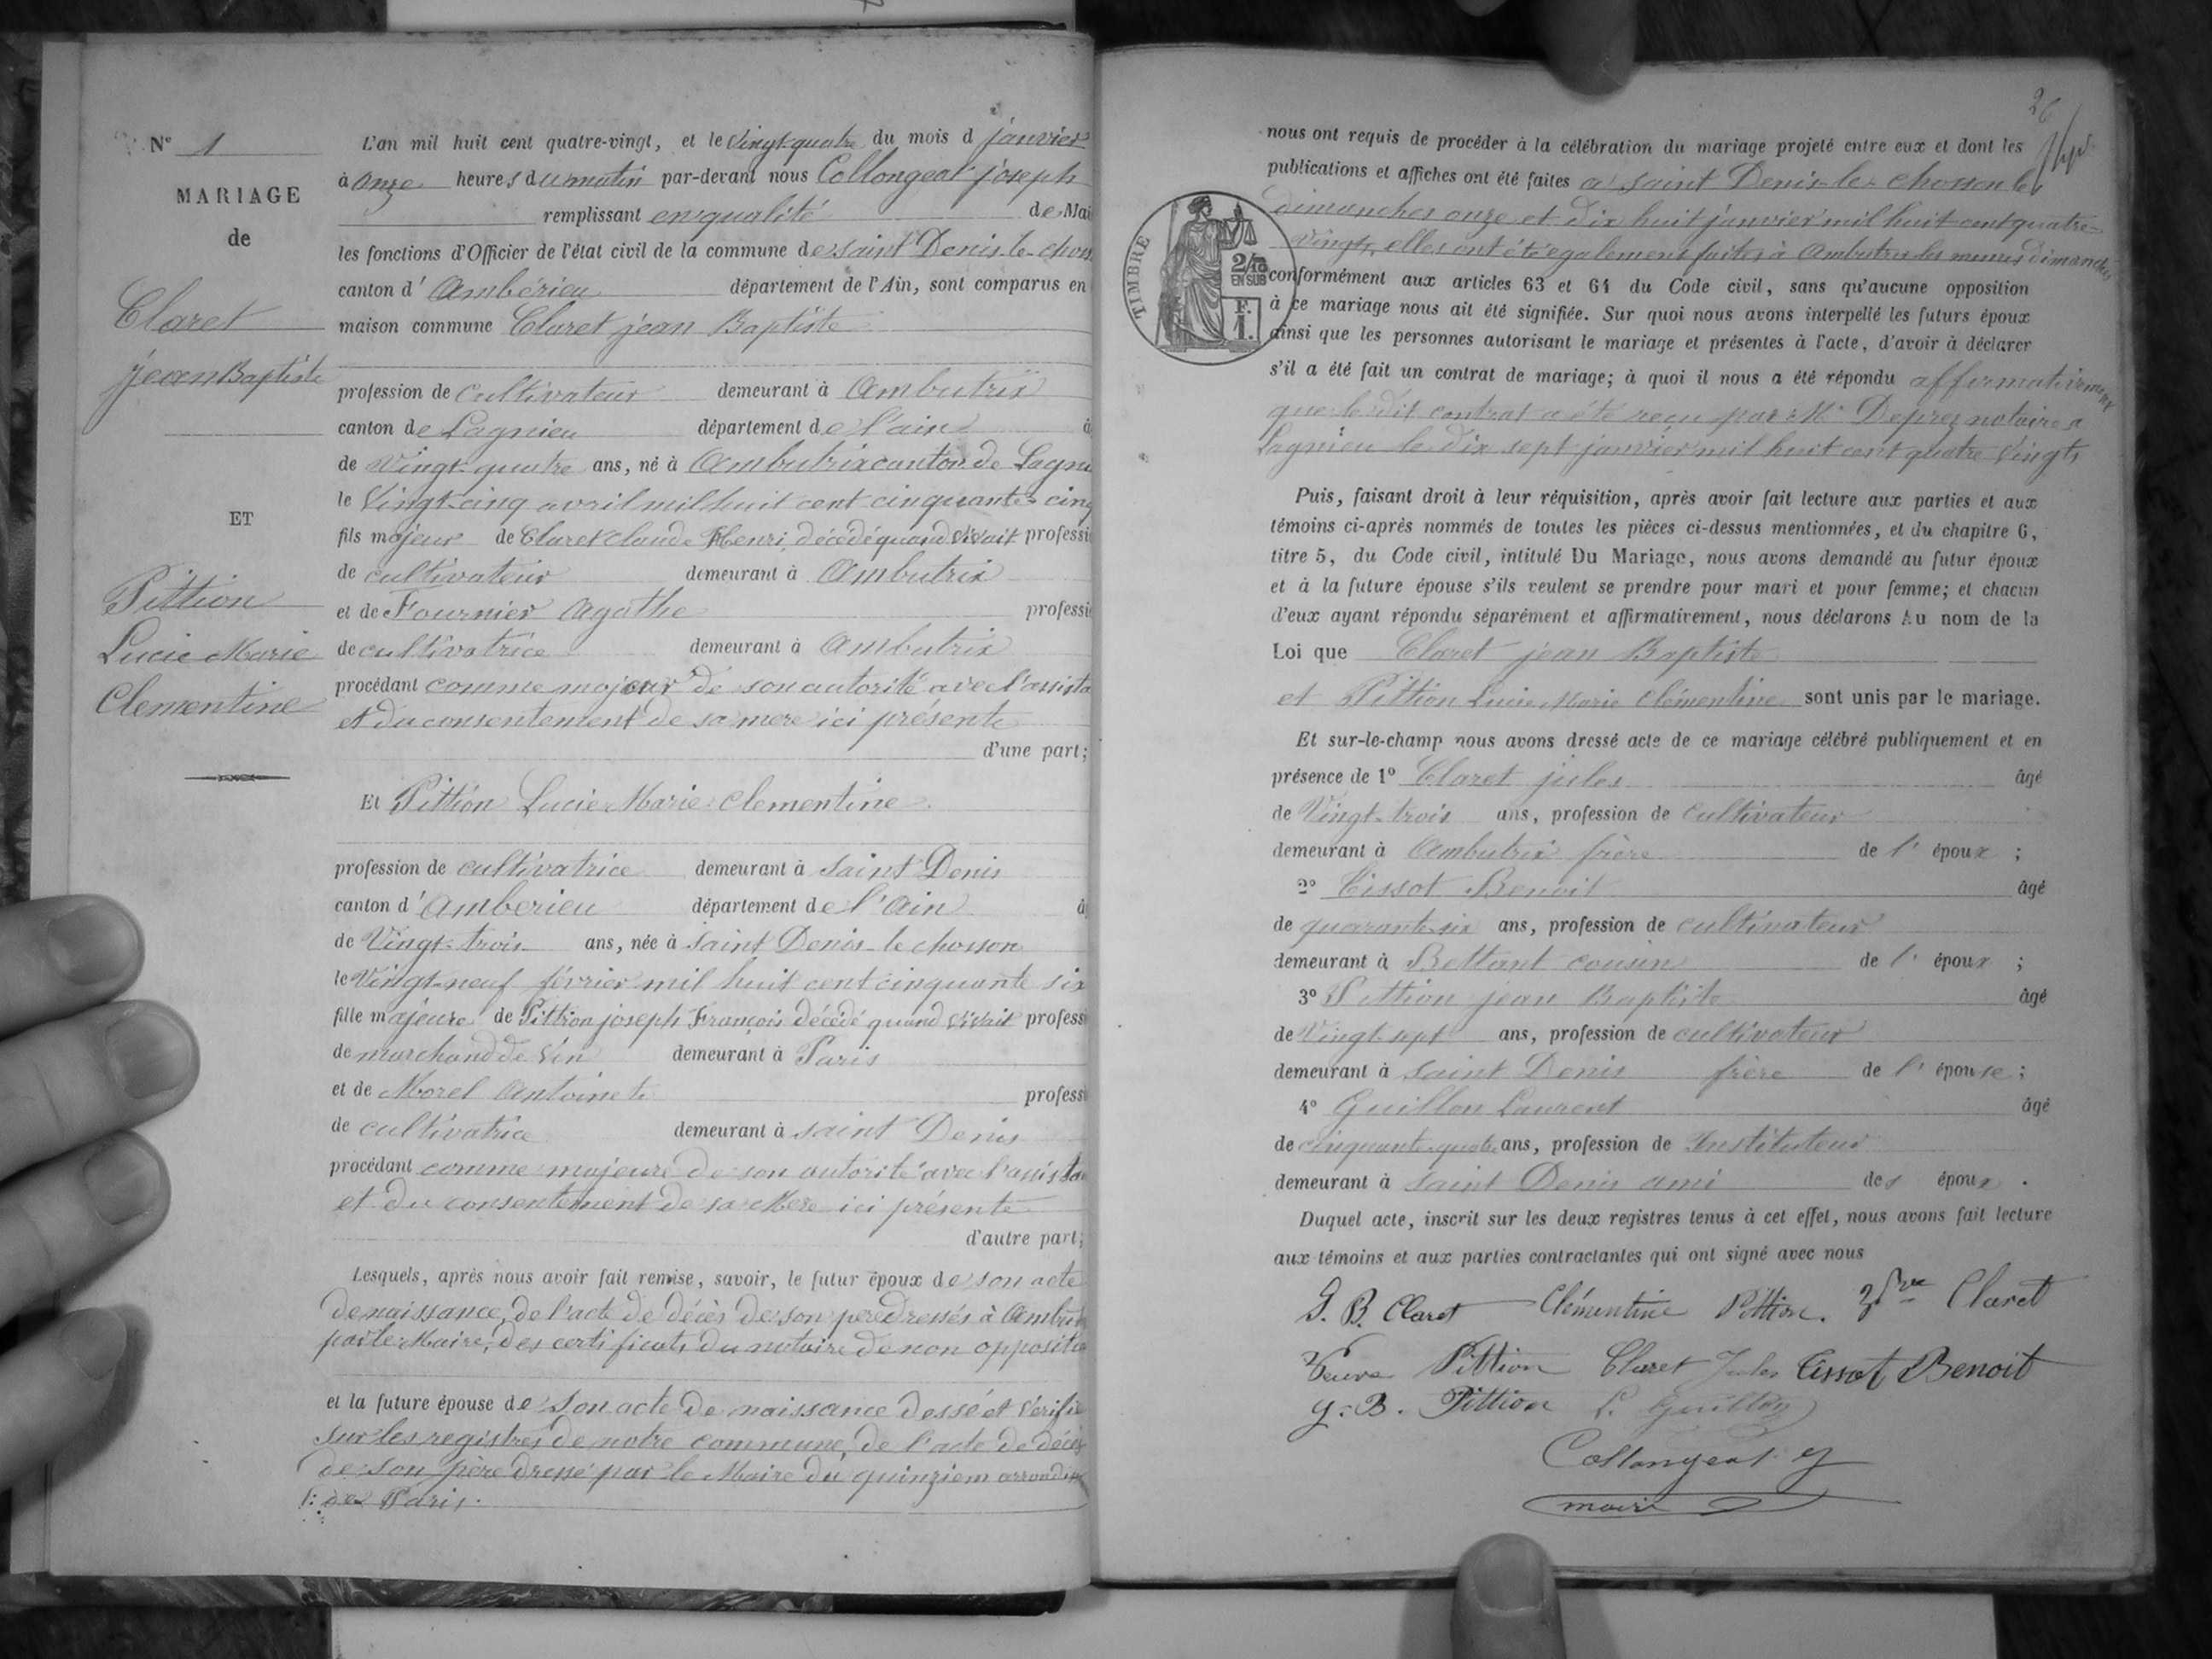 N° 1
MARIAGE
de
Claret
jean Baptiste
ET
Pittion
Lucie Marie
Clementine
L'an mil huit cent quatre-vingt, et le Vingt quatre du mois d janvier
à onze heures du matin par-devant nous Collongeat joseph
remplissant en qualité de Mai
les fonctions d'Officier de l'état civil de la commune de saint Denis-le-choss
canton d' Ambérieu département de l'Ain, sont comparus en
maison commune Claret jean Baptiste
profession de cultivateur demeurant à Ambutrix
canton de Lagnieu département de l'ain â
de Vingt-quatre ans, né à Ambutrix canton de Lagni
le Vingt-cinq avril mil huit cent cinquante cinq
fils majeur de Claret Claude Henri, décédé quand vivait professi
de cultivateur demeurant à Ambutrix
et de Fournier Agathe professi
de cultivatrice demeurant à Ambutrix
procédant comme majeur de son autorité avec l'assista
et du consentement de sa mere ici présente
d'une part;
Et Pittion Lucie Marie Clementine
profession de cultivatrice demeurant à saint Denis
canton d' Amberieu département de l'Ain â
de Vingt-trois ans, née à Saint Denis-le chosson
le Vingt-neuf février mil huit cent cinquante six
fille majeure de Pittion joseph François décédé quand vivait professi
de marchand de vin demeurant à Paris
et de Morel Antoinete professi
de cultivatrice demeurant à saint Denis
procédant comme majeure de son autorité avec l'assista
et du consentement de sa Mere ici présente
d'autre part;
Lesquels, après nous avoir fait remise, savoir, le futur époux de son acte
de naissance, de l'acte de décès de son pere dressés à Ambut
par le Maire, des certificats du notaire de non oppositio
et la future épouse de son acte de naissance dessé et vérifié
sur les registres de notre commune, de l'acte de décès
de son père dressé par le Maire du quinziem arrondis
de Paris.
26
nous ont requis de procéder à la célébration du mariage projeté entre eux et dont les
publications et affiches ont été faites a saint Denis-le-chosson les
dimanches onze et dix huit janvier mil huit cent quatre-
vingt, elles ont été egalement faites à Ambutrix les memes dimanches
TIMBRE
2/10
EN SUS
F.
1.
conformément aux articles 63 et 64 du Code civil, sans qu'aucune opposition
à ce mariage nous ait été signifiée. Sur quoi nous avons interpellé les futurs époux
ainsi que les personnes autorisant le mariage et présentes à l'acte, d'avoir à déclarer
s'il a été fait un contrat de mariage; à quoi il nous a été répondu affirmativement
que le dit contrat a été reçu par Me Deprez notaire a
Lagnieu le dix sept janvier mil huit cent quatre vingts
Puis, faisant droit à leur réquisition, après avoir fait lecture aux parties et aux
témoins ci-après nommés de toutes les pièces ci-dessus mentionnées, et du chapitre 6,
titre 5, du Code civil, intitulé Du Mariage, nous avons demandé au futur époux
et à la future épouse s'ils veulent se prendre pour mari et pour femme; et chacun
d'eux ayant répondu séparément et affirmativement, nous déclarons Au nom de la
Loi que Claret jean Baptiste
et Pittion Lucie Marie Clémentine sont unis par le mariage.
Et sur-le-champ nous avons dressé acte de ce mariage célébré publiquement et en
présence de 1° Claret jules âgé
de Vingt-trois ans, profession de cultivateur
demeurant à Ambutrix frère de l' époux ;
2° Tissot Benoit âgé
de quarante-six ans, profession de cultivateur
demeurant à Bettant cousin de l' époux ;
3° Pittion jean Baptiste âgé
de Vingt sept ans, profession de cultivateur
demeurant à saint Denis frère de l' épouse ;
4° Guillon Laurent âgé
de cinquante-quatre ans, profession de Instituteur
demeurant à saint Denis ami des époux .
Duquel acte, inscrit sur les deux registres tenus à cet effet, nous avons fait lecture
aux témoins et aux parties contractantes qui ont signé avec nous
J. B. Claret Clémentine Pittion. Vve Claret
Veuve Pittion Claret Jules Tissot Benoit
J. B. Pittion L. Guillon
Collongeat J
maire